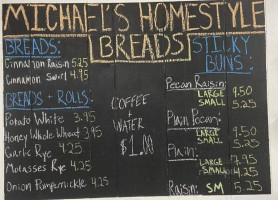 MICHAEL'S HOMESTYLE
BREADS
BREADS:
Cinnamon Raisin 5.25
Cinnamon Swirl 4.95
BREADS + ROLLS:
Potato White 3.95
Honey Whole Wheat 3.95
Garlic Rye 4.25
Molasses Rye 4.25
Onion Pumpernickle 4.25
COFFEE
+
WATER
$1.00
STICKY
BUNS:
Pecan Raisin:
LARGE 9.50
SMALL 5.25
Plain Pecan:
LARGE 9.50
SMALL 5.25
Plain:
LARGE 7.95
SMALL 4.25
Raisin: SM 5.25